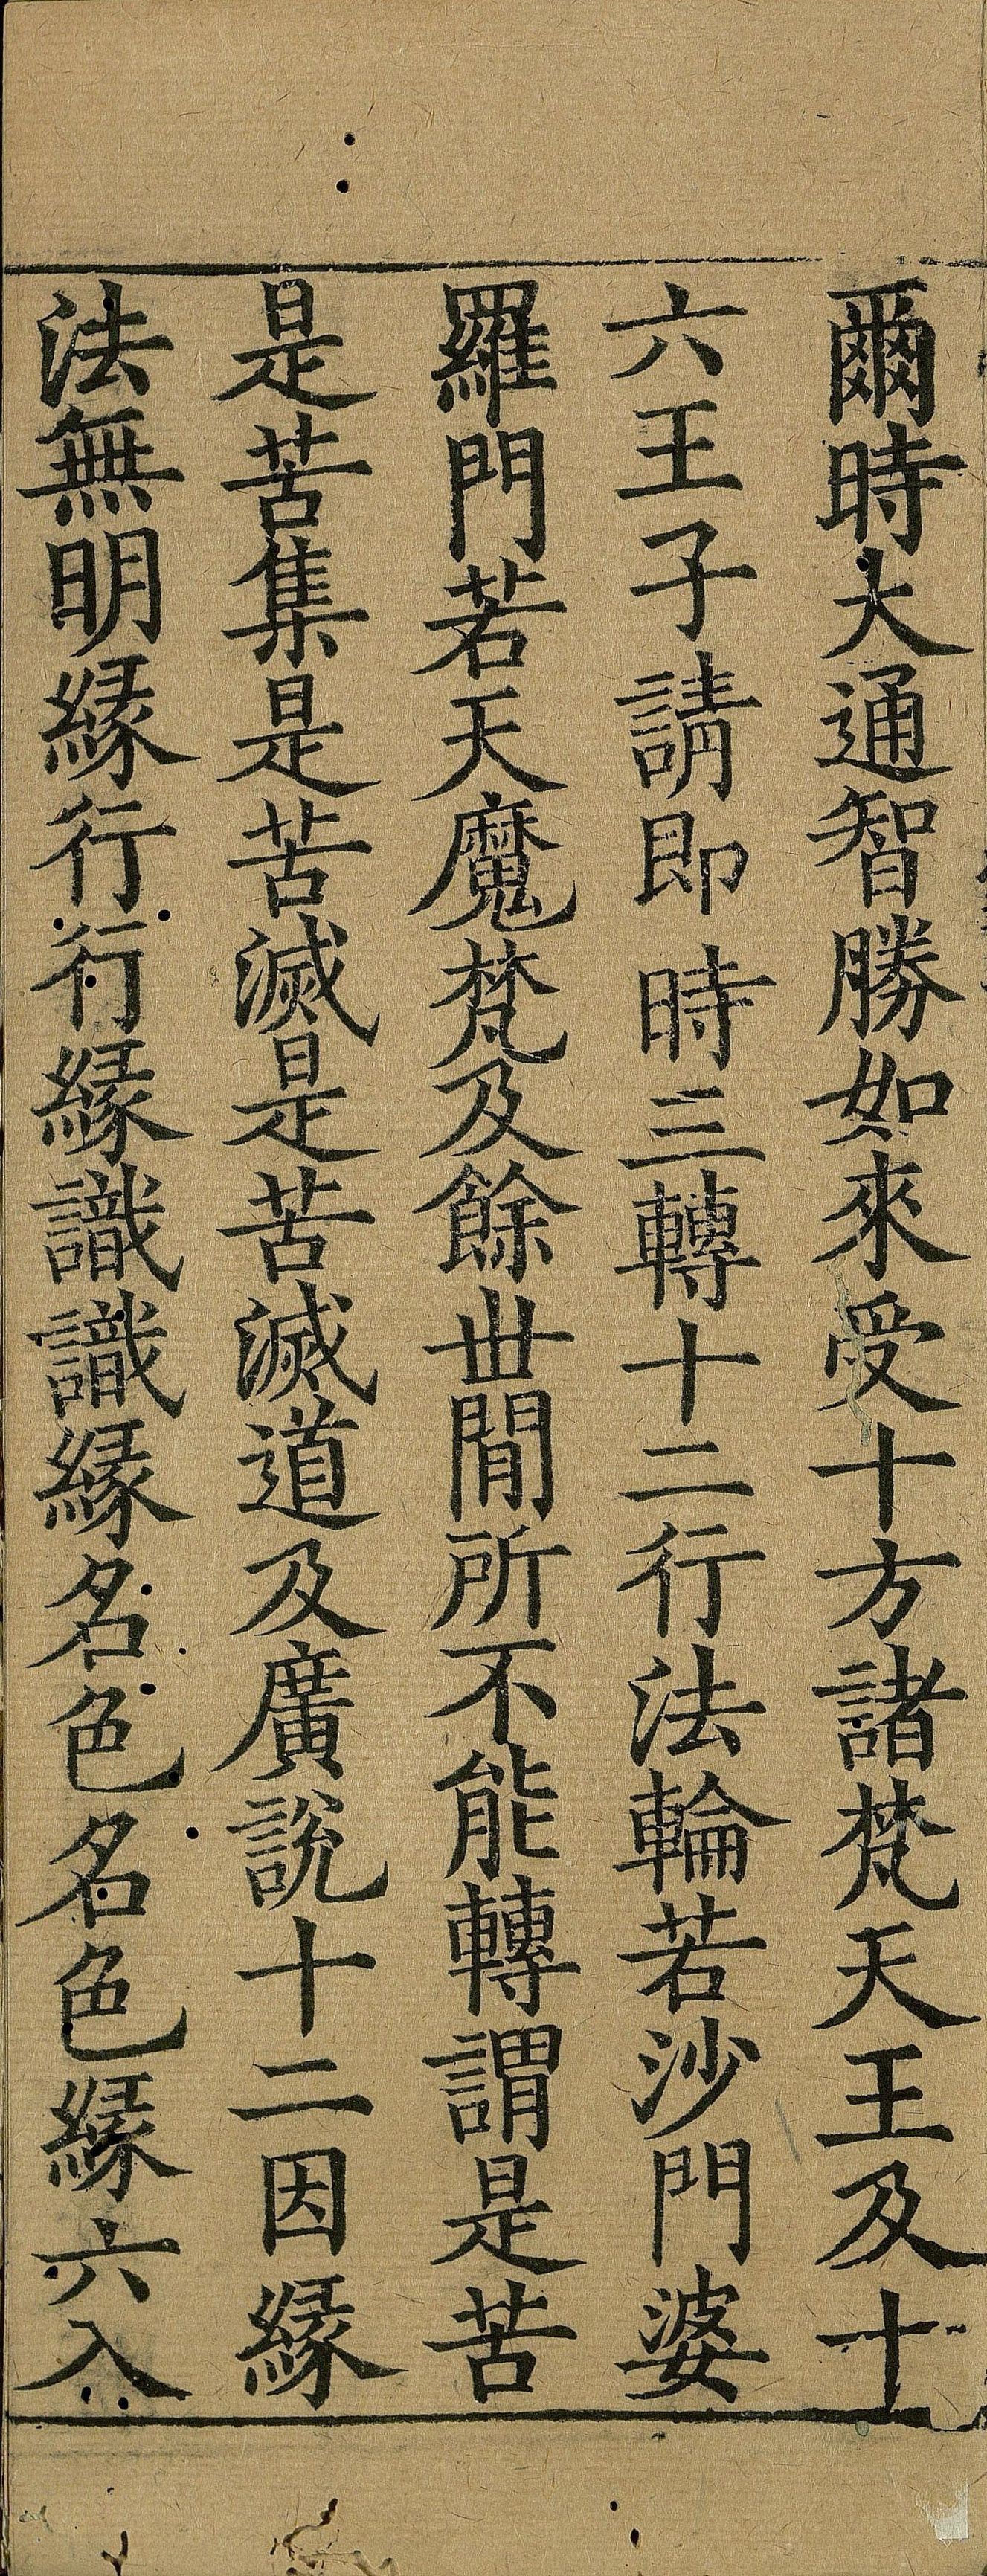 爾時大通智勝如來受十方諸梵天王及十
六王子請即時三轉十二行法輪若沙門婆
羅門若天魔梵及餘丗間所不能轉謂是苦
是苦集是苦滅是苦滅道及廣說十二因緣
法無明緣行行緣識識緣名色名色緣六入